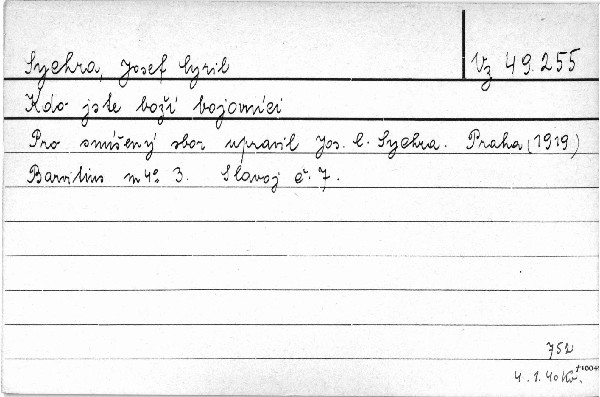 Sychra, Josef Cyril Vz 49.255
Kdo jste boží bojovníci
Pro smíšený sbor upravil Jos. C. Sychra. Praha (1919)
Barvitius m4° 3. Slavoj č. 7.
752
4.1.40 Kř.